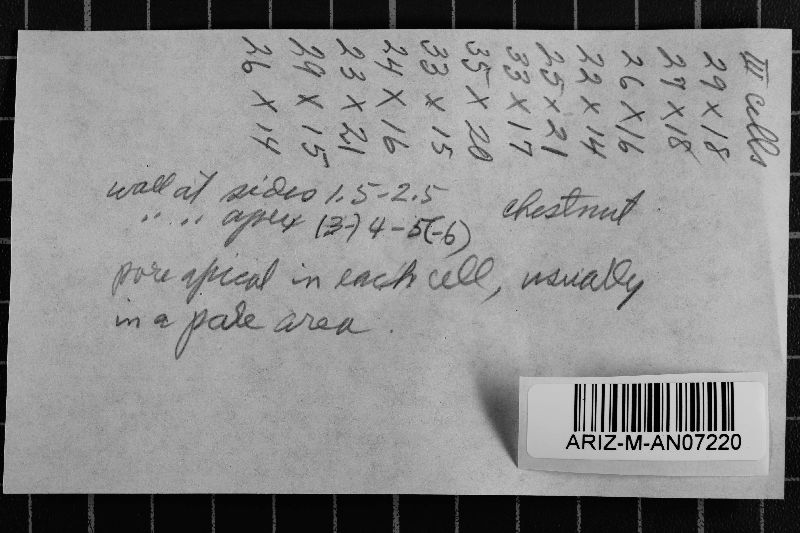 III cells
29 X 18
27 X 18
26 X 16
22 X 14
25 X 21
33 X 17
35 X 20
33 X 15
24 X 16
23 X 21
29 X 15
26 X 14
wall at sides 1.5-2.5
" " apex (3-) 4-5(-6)
chestnut
pore apical in each cell, usually
in a pale area.
ARIZ-M-AN07220